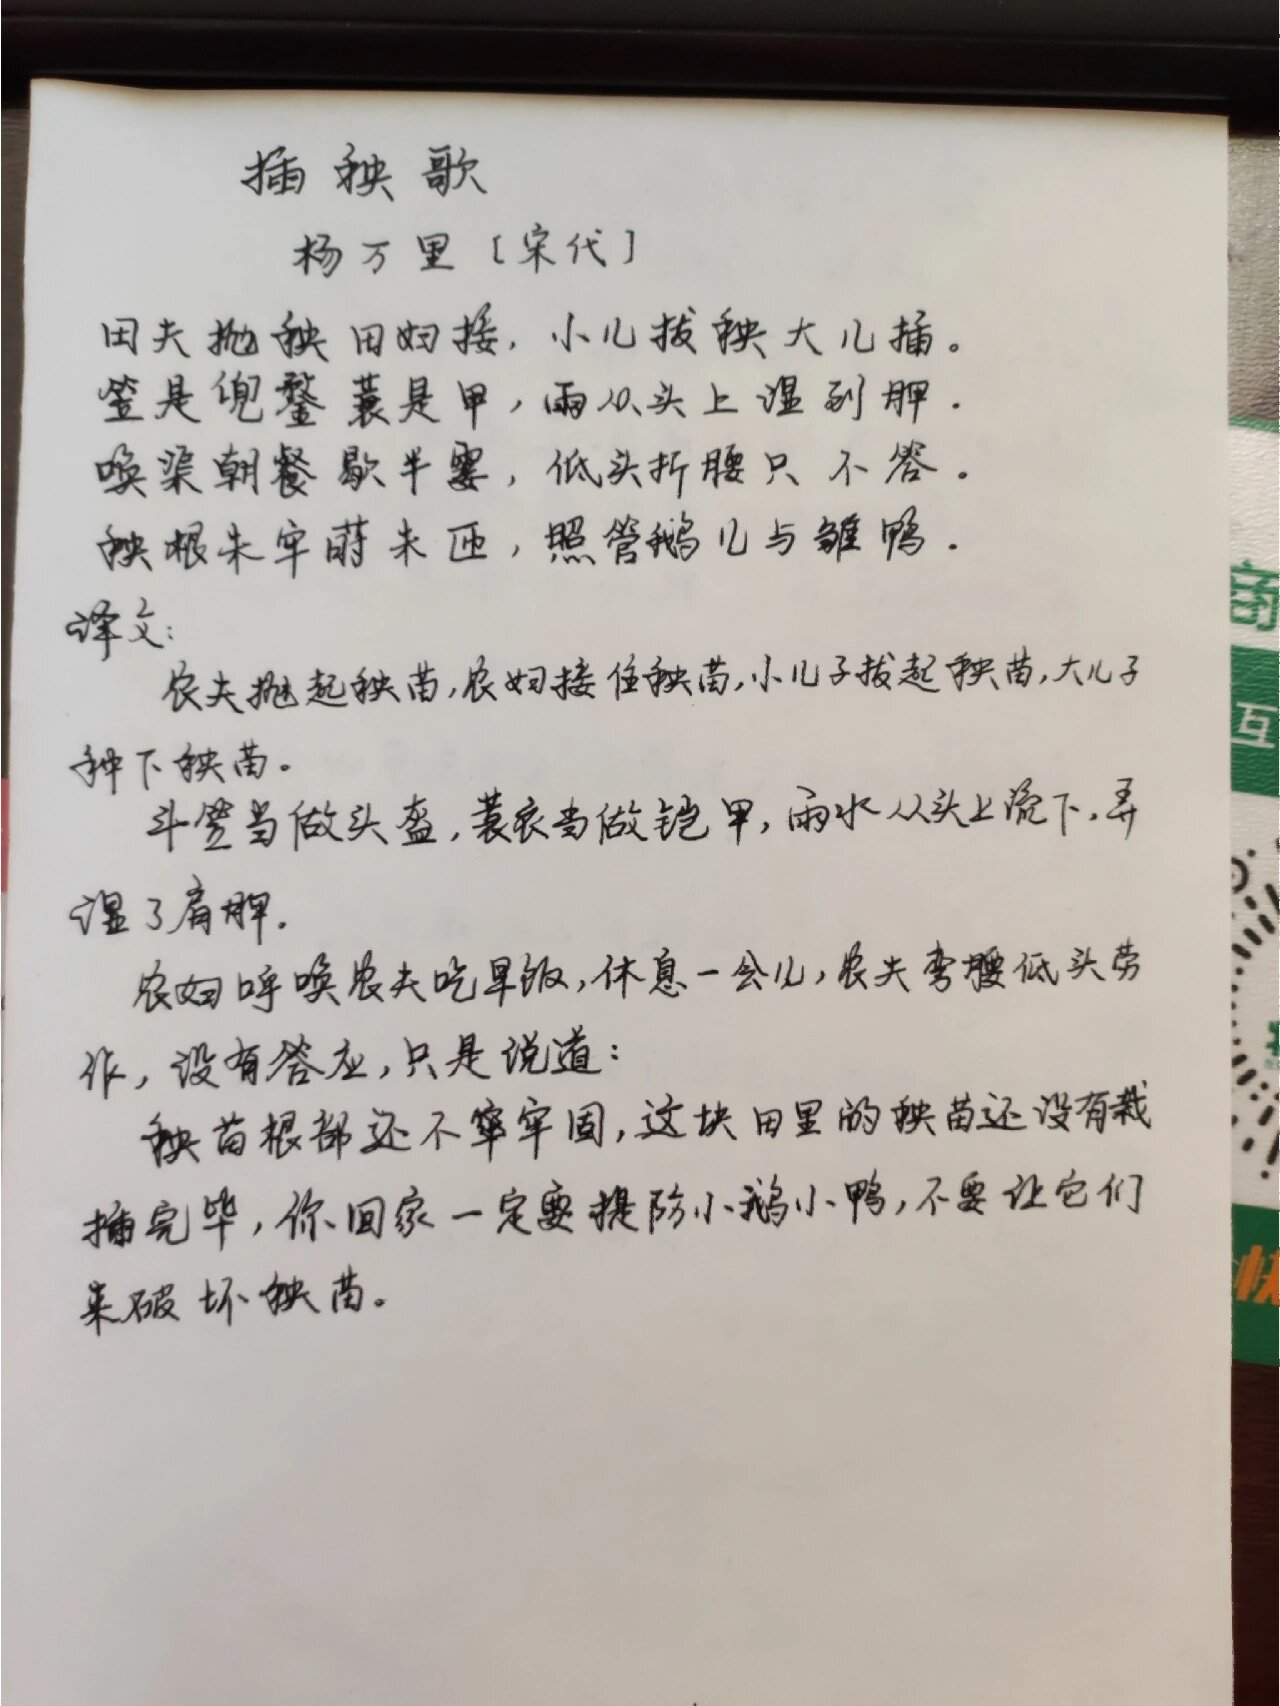 插秧歌
杨万里［宋代］
田夫抛秧田妇接，小儿拔秧大儿插。
笠是兜鍪蓑是甲，雨从头上湿到胛。
唤渠朝餐歇半霎，低头折腰只不答。
秧根未牢莳未匝，照管鹅儿与雏鸭。
译文：
农夫抛起秧苗，农妇接住秧苗，小儿子拔起秧苗，大儿子
种下秧苗。
斗笠当做头盔，蓑衣当做铠甲，雨水从头上流下，弄
湿了肩胛。
农妇呼唤农夫吃早饭，休息一会儿，农夫弯腰低头劳
作，没有答应，只是说道：
秧苗根部还不牢固，这块田里的秧苗还没有栽
插完毕，你回家一定要提防小鹅小鸭，不要让它们
来破坏秧苗。
商
互
快